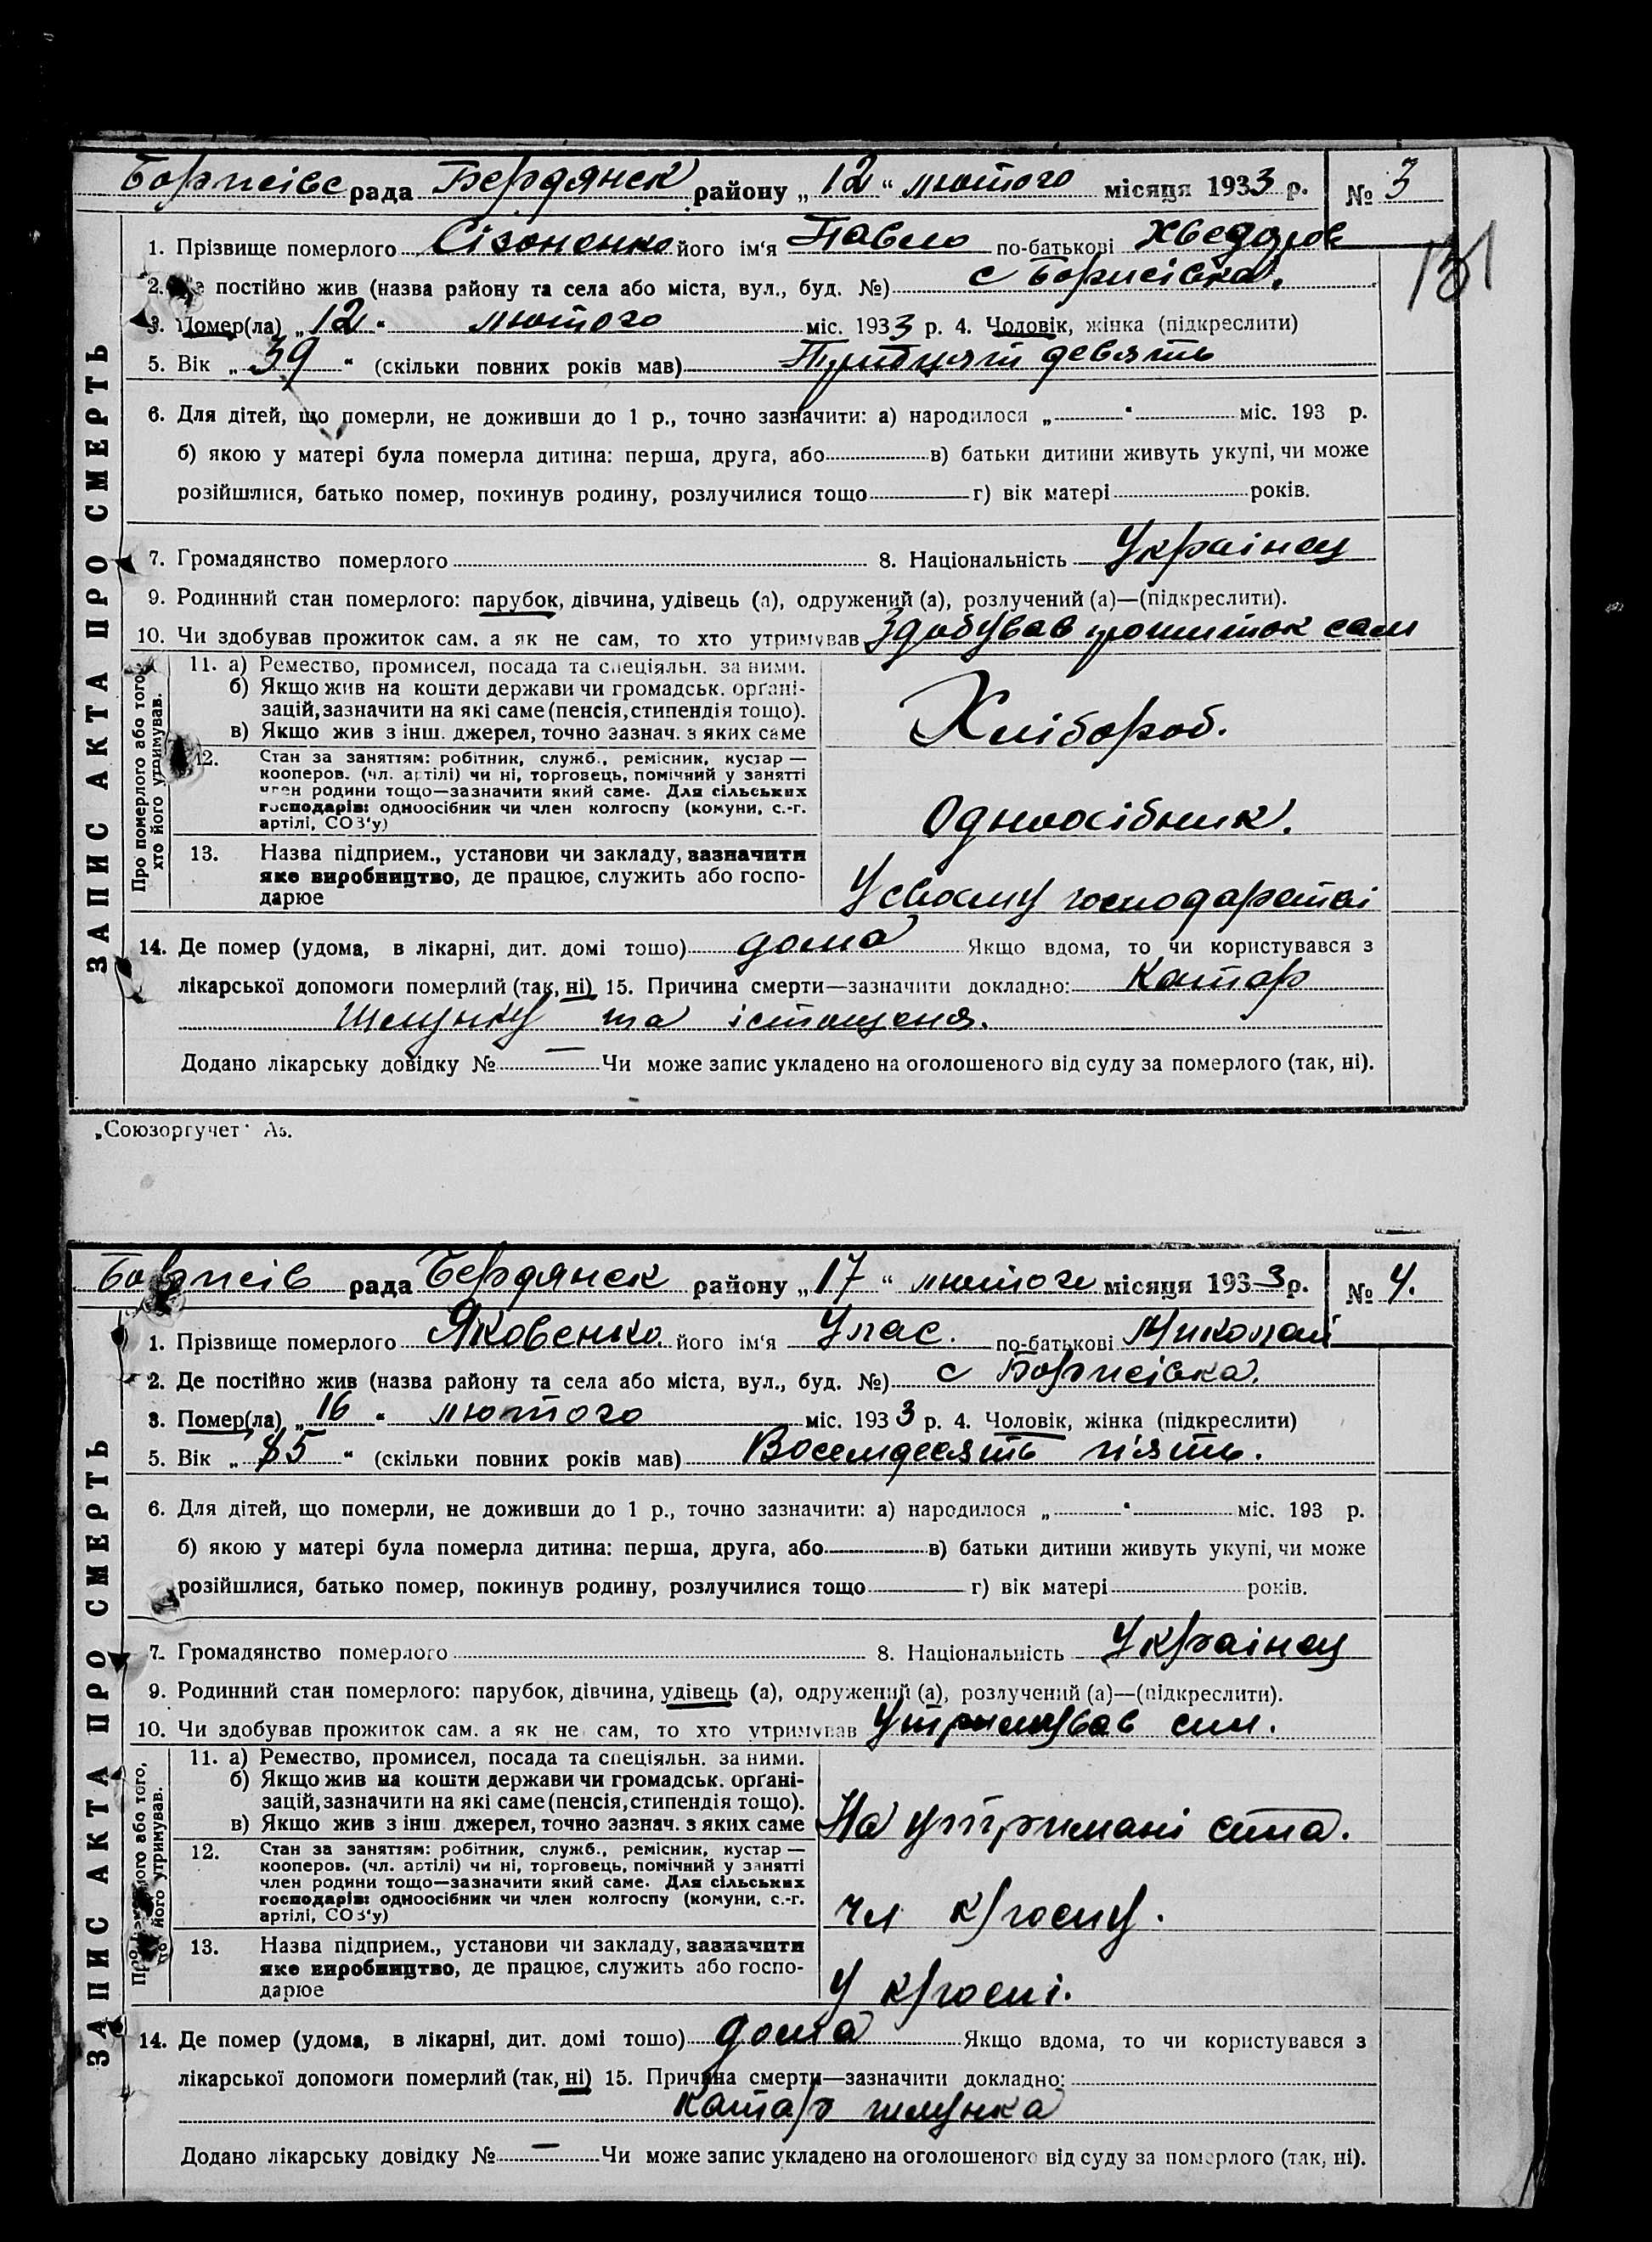 Борисівс рада Бердянск району „12“ лютого місяця 1933 р. № 3
131
1. Прізвище померлого Сізоненко його ім'я Павло по-батькові Хведоров
2. постійно жив (назва району та села або міста, вул., буд. №) с Борисівка.
3. Помер(ла) „12“ лютого міс. 1933 р. 4. Чоловік, жінка (підкреслити)
5. Вік „39“ (скільки повних років мав) Тридцят девять
6. Для дітей, що померли, не доживши до 1 р., точно зазначити: а) народилося „ “ міс. 193 р.
б) якою у матері була померла дитина: перша, друга, або в) батьки дитини живуть укупі, чи може
розійшлися, батько помер, покинув родину, розлучилися тощо г) вік матері років.
7. Громадянство померлого 8. Національність Українец
9. Родинний стан померлого: парубок, дівчина, удівець (а), одружений (а), розлучений (а)—(підкреслити).
10. Чи здобував прожиток сам. а як не сам, то хто утримував Здобував прожиток сам
11. а) Ремество, промисел, посада та спеціяльн. за ними.
б) Якщо жив на кошти держави чи громадськ. орґані-
зацій, зазначити на які саме (пенсія, стипендія тощо).
в) Якщо жив з інш. джерел, точно зазнач. з яких саме
Хлібороб.
12. Стан за заняттям: робітник, служб., ремісник, кустар —
кооперов. (чл. артілі) чи ні, торговець, помічний у занятті
член родини тощо—зазначити який саме. Для сільських
господарів: одноосібник чи член колгоспу (комуни, с.-г.
артілі, СОЗ'у)
Одноосібник.
13. Назва підприєм., установи чи закладу, зазначити
яке виробництво, де працює, служить або госпо-
дарює
У своєму господарстві
14. Де помер (удома, в лікарні, дит. домі тошо) дома Якщо вдома, то чи користувався з
лікарської допомоги померлий (так, ні) 15. Причина смерти—зазначити докладно: Катар
Шлунку та істощеня.
Додано лікарську довідку № — Чи може запис укладено на оголошеного від суду за померлого (так, ні).
ЗАПИС АКТА ПРО СМЕРТЬ
Про померлого або того, хто його утримував.
„Союзоргучет“ Аз.
Борисів рада Бердянск району „17“ лютого місяця 1933 р. № 4.
1. Прізвище померлого Яковенко його ім'я Улас. по-батькові Миколай
2. Де постійно жив (назва району та села або міста, вул., буд. №) с Борисівка.
3. Помер(ла) „16“ лютого міс. 1933 р. 4. Чоловік, жінка (підкреслити)
5. Вік „85“ (скільки повних років мав) Восемдесять п'ять.
6. Для дітей, що померли, не доживши до 1 р., точно зазначити: а) народилося „ “ міс. 193 р.
б) якою у матері була померла дитина: перша, друга, або в) батьки дитини живуть укупі, чи може
розійшлися, батько помер, покинув родину, розлучилися тощо г) вік матері років.
7. Громадянство померлого 8. Національність Українец
9. Родинний стан померлого: парубок, дівчина, удівець (а), одружений (а), розлучений (а)—(підкреслити).
10. Чи здобував прожиток сам. а як не сам, то хто утримував Утримував син.
11. а) Ремество, промисел, посада та спеціяльн. за ними.
б) Якщо жив на кошти держави чи громадськ. орґані-
зацій, зазначити на які саме (пенсія, стипендія тощо).
в) Якщо жив з інш. джерел, точно зазнач. з яких саме
На утримані сина.
12. Стан за заняттям: робітник, служб., ремісник, кустар —
кооперов. (чл. артілі) чи ні, торговець, помічний у занятті
член родини тощо—зазначити який саме. Для сільських
господарів: одноосібник чи член колгоспу (комуни, с.-г.
артілі, СОЗ'у)
чл к/госпу.
13. Назва підприєм., установи чи закладу, зазначити
яке виробництво, де працює, служить або госпо-
дарює
У к/госпі.
14. Де помер (удома, в лікарні, дит. домі тошо) дома Якщо вдома, то чи користувався з
лікарської допомоги померлий (так, ні) 15. Причина смерти—зазначити докладно:
Катар шлунка
Додано лікарську довідку № — Чи може запис укладено на оголошеного від суду за померлого (так, ні).
ЗАПИС АКТА ПРО СМЕРТЬ
або того, його утримував.